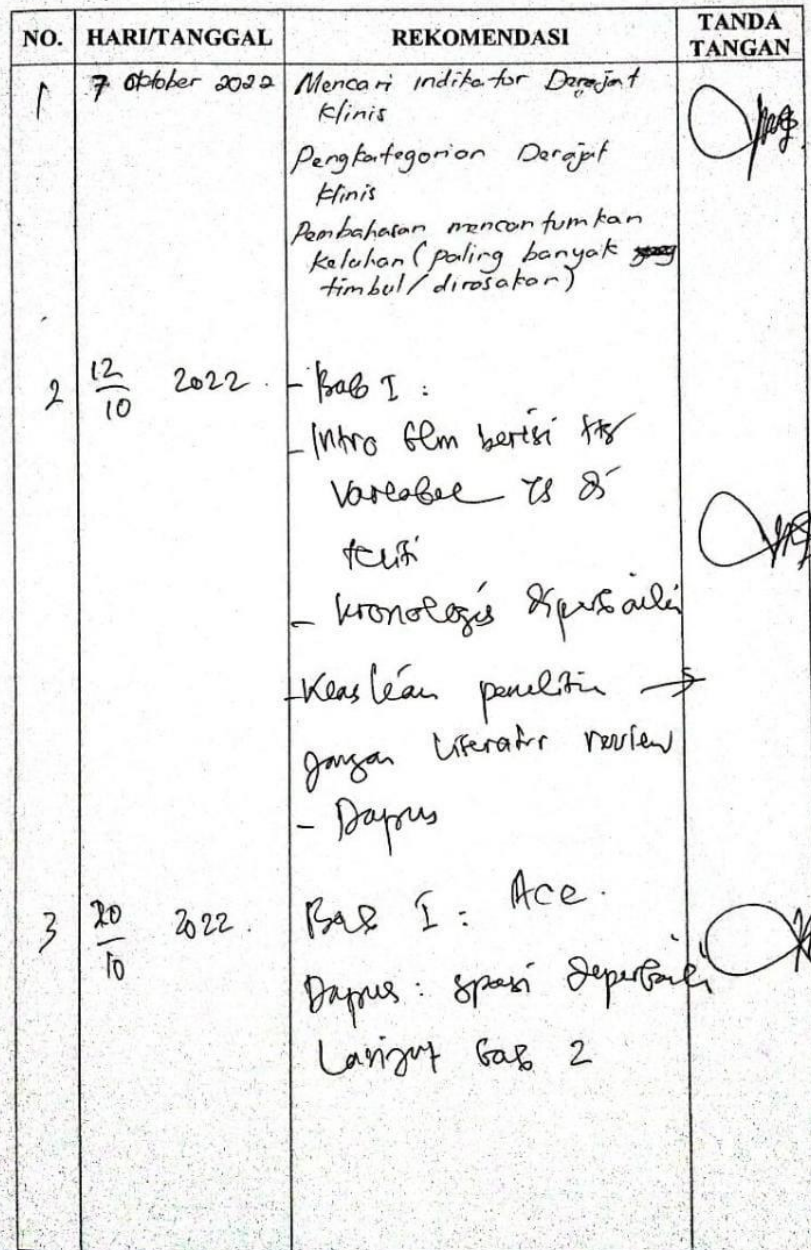 NO. HARI/TANGGAL REKOMENDASI TANDA TANGAN
1 7 Oktober 2022 Mencari indikator Derajat
klinis
Pengkategorian Derajat
klinis
Pembahasan mencantumkan
keluhan (paling banyak
timbul/dirasakan)
2 12/10 2022. - Bab I :
- Intro blm berisi ttg
Variabel yg di
teliti
- kronologis diperbaiki
- Keaslian penelitin →
jangan literatur review
- Dapus
3 20/10 2022. Bab I : Acc.
Dapus : spasi diperbaiki
Lanjut bab 2